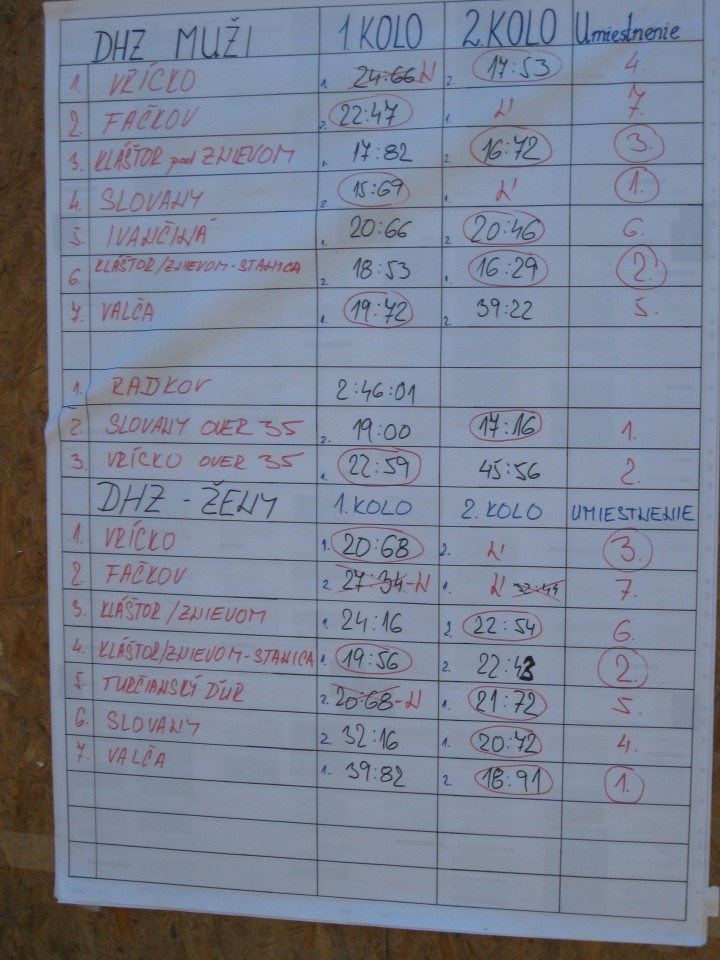 DHZ MUŽI 1. KOLO 2. KOLO Umiestnenie
1. VRÍCKO 1. 24:66 N 2. 17:53 4.
2. FAČKOV 2. 22:47 1. N 7.
3. KLÁŠTOR pod ZNIEVOM 1. 17:82 2. 16:72 3.
4. SLOVANY 2. 15:69 1. N 1.
5. IVANČINÁ 1. 20:66 2. 20:46 6.
6. KLÁŠTOR/ZNIEVOM-STANICA 2. 18:53 1. 16:29 2.
7. VALČA 1. 19:72 2. 39:22 5.
1. RADKOV 2:46:01
2. SLOVANY OVER 35 2. 19:00 17:16 1.
3. VRÍCKO OVER 35 1. 22:59 45:56 2.
DHZ - ŽENY 1. KOLO 2. KOLO UMIESTNENIE
1. VRÍCKO 1. 20:68 2. N 3.
2. FAČKOV 2. 27:34-N 1. N 7.
3. KLÁŠTOR/ZNIEVOM 1. 24:16 2. 22:54 6.
4. KLÁŠTOR/ZNIEVOM-STANICA 1. 19:56 2. 22:43 2.
5. TURČIANSKÝ ĎUR 2. 20:68-N 1. 21:72 5.
6. SLOVANY 2. 32:16 1. 20:72 4.
7. VALČA 1. 39:82 2. 18:91 1.